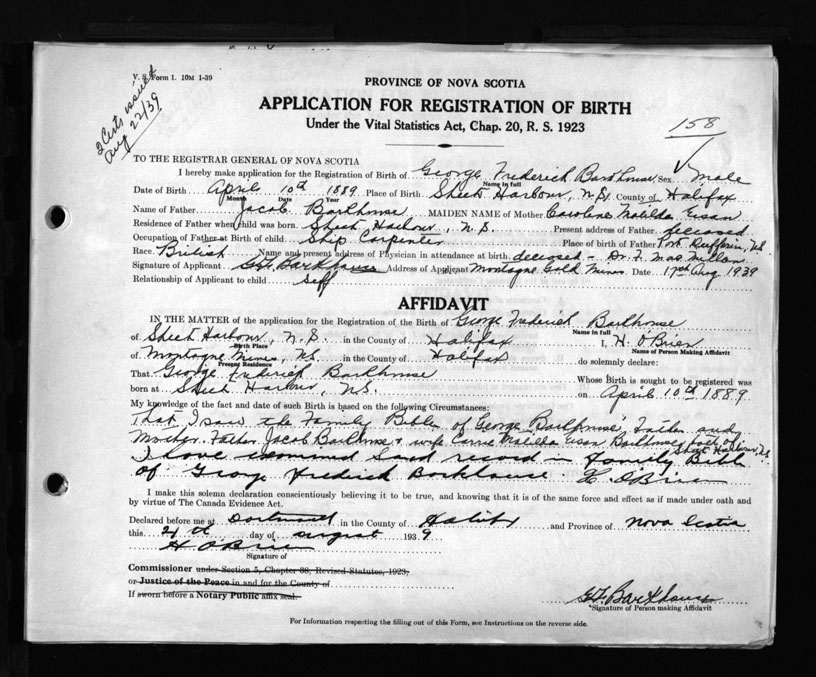 V. S. Form 1. 10M 1-39
2 Certs issued
Aug 22/39
PROVINCE OF NOVA SCOTIA
APPLICATION FOR REGISTRATION OF BIRTH
Under the Vital Statistics Act, Chap. 20, R. S. 1923
158
TO THE REGISTRAR GENERAL OF NOVA SCOTIA
I hereby make application for the Registration of Birth of George Frederick Barkhouse Sex Male
Name in full
Date of Birth April 10th 1889 Place of Birth Sheet Harbour, N.S. County of Halifax
Month Date Year
Name of Father Jacob Barkhouse MAIDEN NAME of Mother Caroline Matilda Eisan
Residence of Father when child was born Sheet Harbour, N.S. Present address of Father deceased
Occupation of Father at Birth of child Ship Carpenter Place of birth of Father Port Dufferin, N.S.
Race British Name and present address of Physician in attendance at birth deceased - Dr. F. MacMillan
Signature of Applicant G. F. Barkhouse Address of Applicant Montague Gold Mines Date 17th Aug 1939
Relationship of Applicant to child Self
AFFIDAVIT
IN THE MATTER of the application for the Registration of the Birth of George Frederick Barkhouse
Name in full
of Sheet Harbour, N.S. in the County of Halifax I, H. O'Brien
Birth Place Name of Person Making Affidavit
of Montague Mines, N.S. in the County of Halifax do solemnly declare:
Present Residence
That George Frederick Barkhouse Whose Birth is sought to be registered was
born at Sheet Harbour, N.S. on April 10th 1889
My knowledge of the fact and date of such Birth is based on the following Circumstances:
That I saw the Family Bible of George Barkhouse's Father and
Mother. Father Jacob Barkhouse & wife Carrie Matilda Eisan Barkhouse both of Sheet Harbour, N.S.
I have examined said record in family Bible
of George Frederick Barkhouse H. O'Brien
I make this solemn declaration conscientiously believing it to be true, and knowing that it is of the same force and effect as if made under oath and
by virtue of The Canada Evidence Act.
Declared before me at Dartmouth in the County of Halifax and Province of Nova Scotia
this 21st day of August 1939
H O'Brien
Signature of
Commissioner under Section 5, Chapter 38, Revised Statutes, 1923,
or Justice of the Peace in and for the County of
If sworn before a Notary Public affix seal.
G. F. Barkhouse
*Signature of Person making Affidavit
For Information respecting the filling out of this Form, see Instructions on the reverse side.